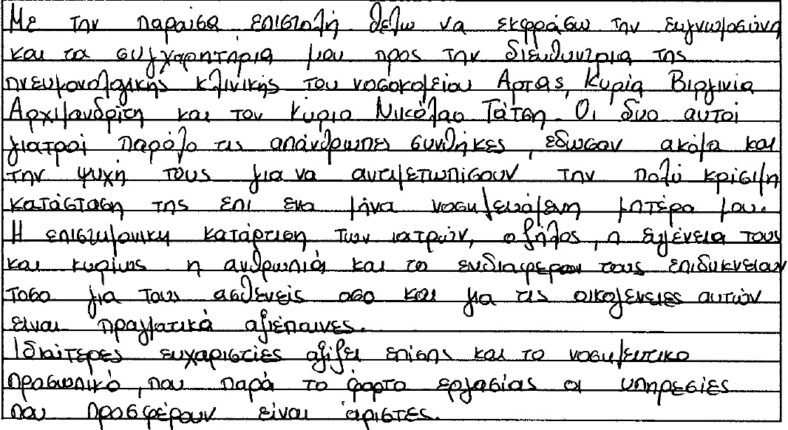 Με την παρουσα επιστολή θελω να εκφράσω την ευγνωμοσύνη
και τα συγχαρητήρια μου προς την διευθυντρια της
πνευμονολογικής κλινικής του νοσοκομείου Αρτας, Κυρία Βιργινία
Αρχιμανδρίτη και τον κυριο Νικόλαο Τάτση. Οι δυο αυτοί
γιατροί παρόλο τις απάνθρωπες συνθήκες, εδωσαν ακόμα και
την ψυχή τους για να αντιμετωπίσουν την πολύ κρίσιμη
κατάσταση της επι ενα μήνα νοσηλευόμενη μητέρα μου.
Η επιστημονικη κατάρτιση των ιατρών, ο ζήλος, η ευγένεια τους
και κυρίως η ανθρωπιά και το ενδιαφερον τους επιδυκνειαν
τοσο για τους ασθενείς οσο και για τις οικογενειες αυτών
είναι πραγματικά αξιέπαινες.
Ιδιαίτερες ευχαριστίες αξίζει επίσης και το νοσηλευτικο
προσωπικό, που παρά το φορτο εργασίας οι υπηρεσίες
που προσφέρουν είναι άριστες.